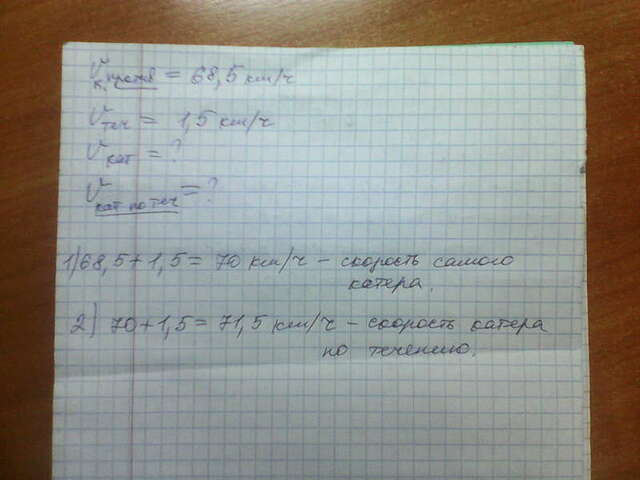 Vк.против = 68,5 км/ч
Vтеч = 1,5 км/ч
Vкат = ?
Vкат по теч = ?
1) 68,5 + 1,5 = 70 км/ч – скорость самого
катера.
2) 70 + 1,5 = 71,5 км/ч – скорость катера
по течению.